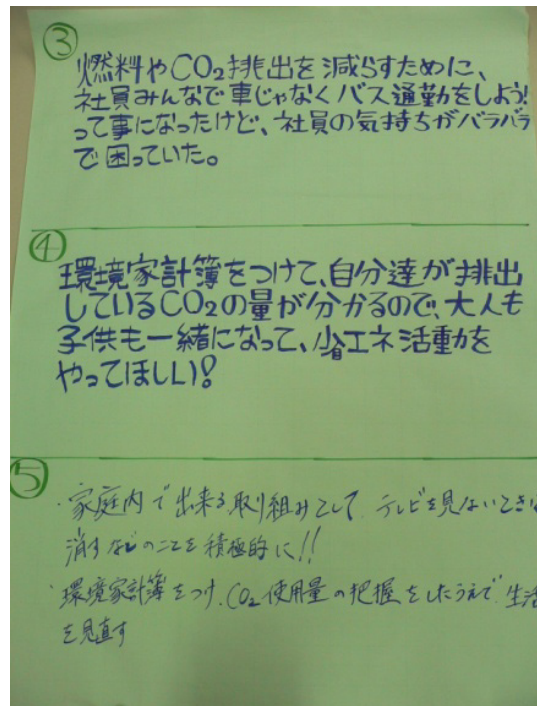 ③
燃料やCO₂排出を減らすために、
社員みんなで車じゃなくバス通勤をしよう!
って事になったけど、社員の気持ちがバラバラ
で困っていた。
④
環境家計簿をつけて、自分達が排出
しているCO₂の量が分かるので、大人も
子供も一緒になって、省エネ活動を
やってほしい!
⑤
・家庭内で出来る取り組みとして、テレビを見ないときは
消すなどのことを積極的に!!
・環境家計簿をつけ、CO₂使用量の把握をしたうえで生活
を見直す